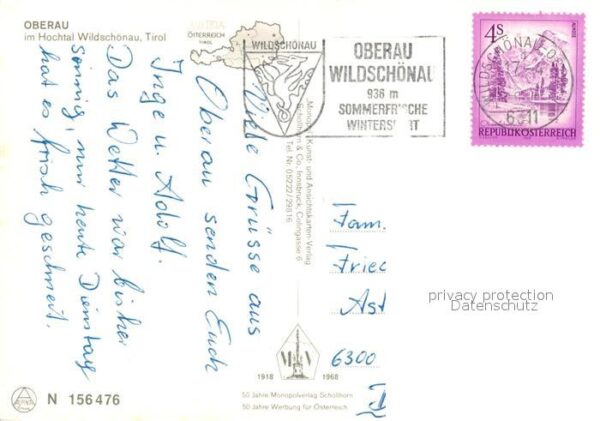 OBERAU
im Hochtal Wildschönau, Tirol
AUSTRIA
ÖSTERREICH
TIROL
WILDSCHÖNAU
OBERAU
WILDSCHÖNAU
936 m
SOMMERFRISCHE
WINTERSPORT
4S
REPUBLIK ÖSTERREICH
WILDSCHÖNAU-OB
6311
Viele Grüsse aus
Oberau senden Euch
Inge u. Adolf.
Das Wetter war bisher
sonnig, nur heute Dienstag
hat es frish geschneit.
Monopol Kunst- und Ansichtskarten-Verlag
Schöllhorn & Co., Innsbruck, Colingasse 6
Tel. Nr. 05222/29816
Fam.
Fried
Ast
6300
privacy protection
Datenschutz
1918
1968
50 Jahre Monopolverlag Schöllhorn
50 Jahre Werbung für Österreich
N 156476